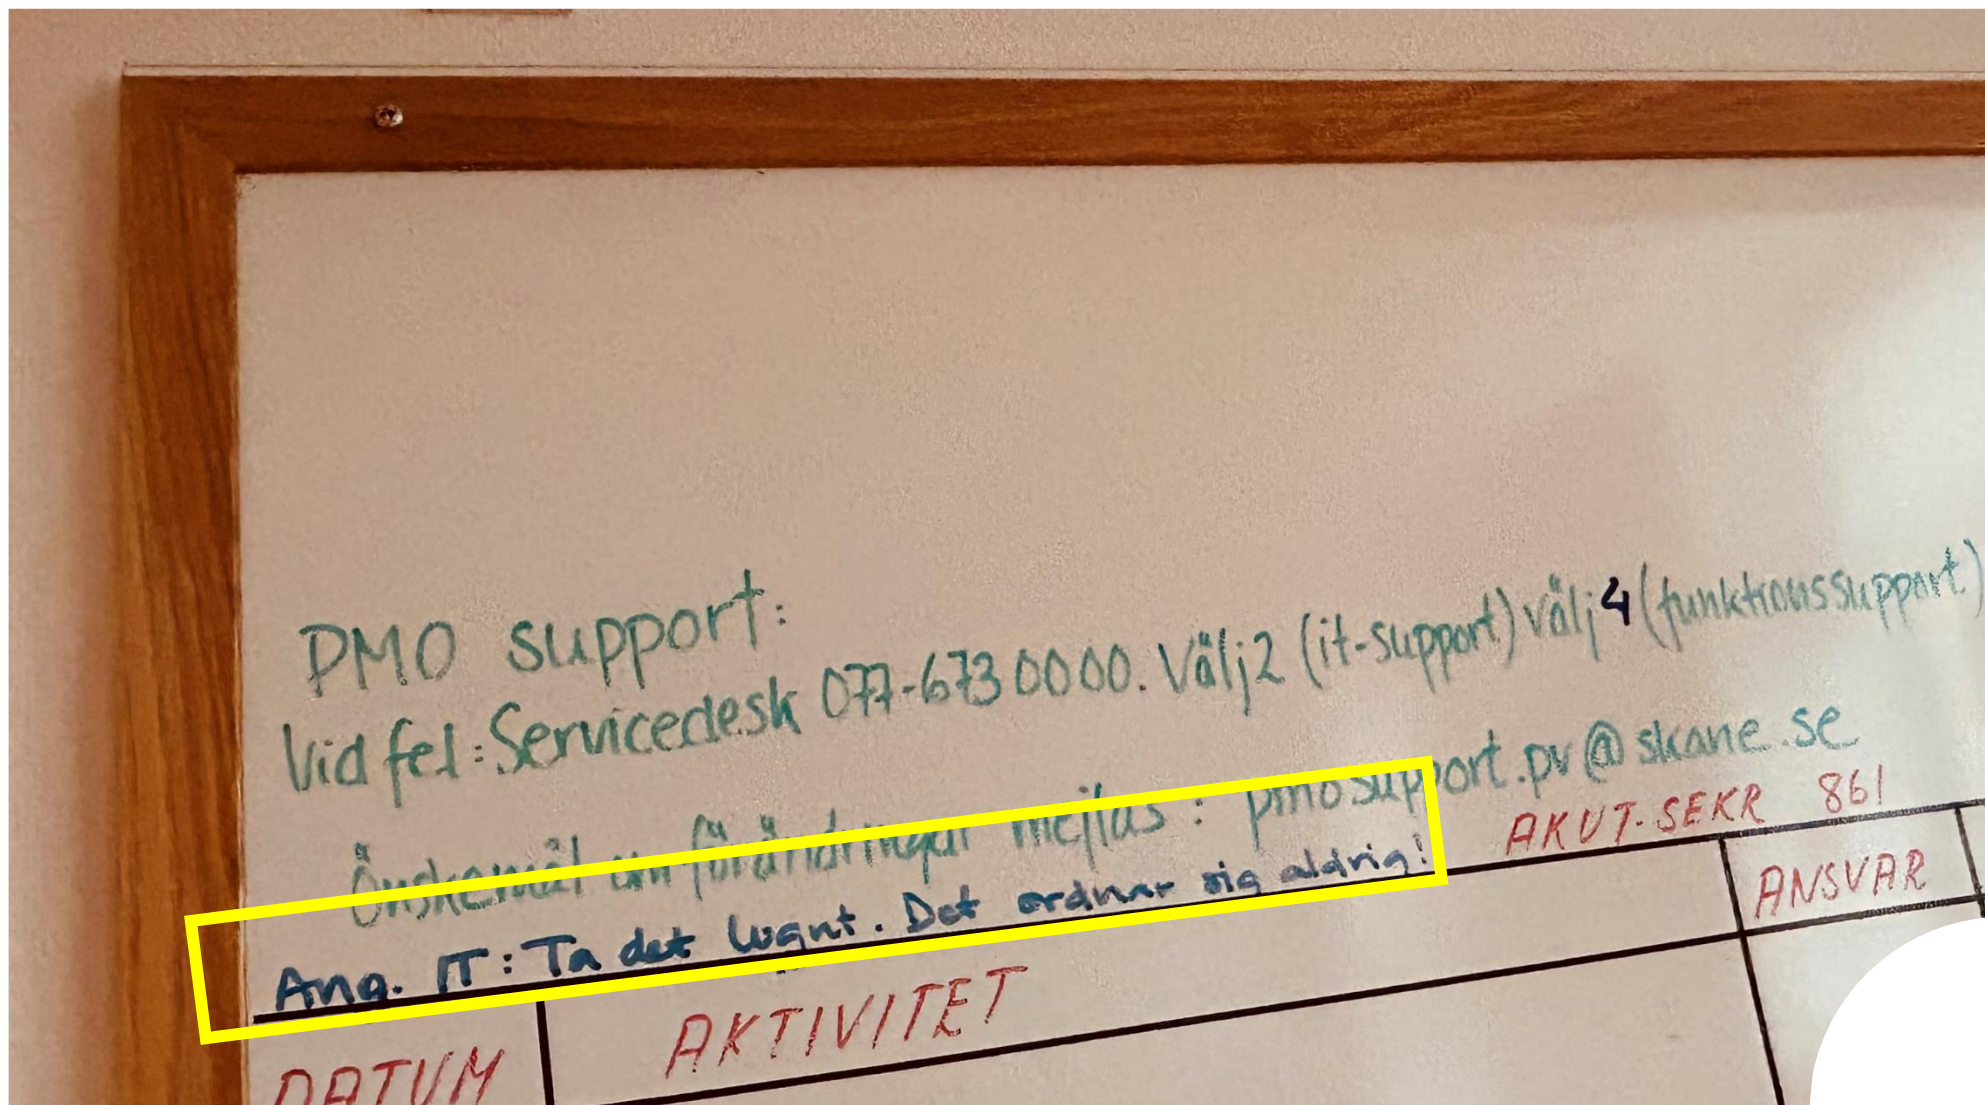 PMO support:
Vid fel: Servicedesk 077-673 00 00. Välj 2 (it-support) välj 4 (funktionssupport)
Önskemål om förändringar mejlas: pmosupport.pv@skane.se
AKUT-SEKR 861
Ang. IT: Ta det lugnt. Det ordnar sig aldrig!
DATUM AKTIVITET ANSVAR